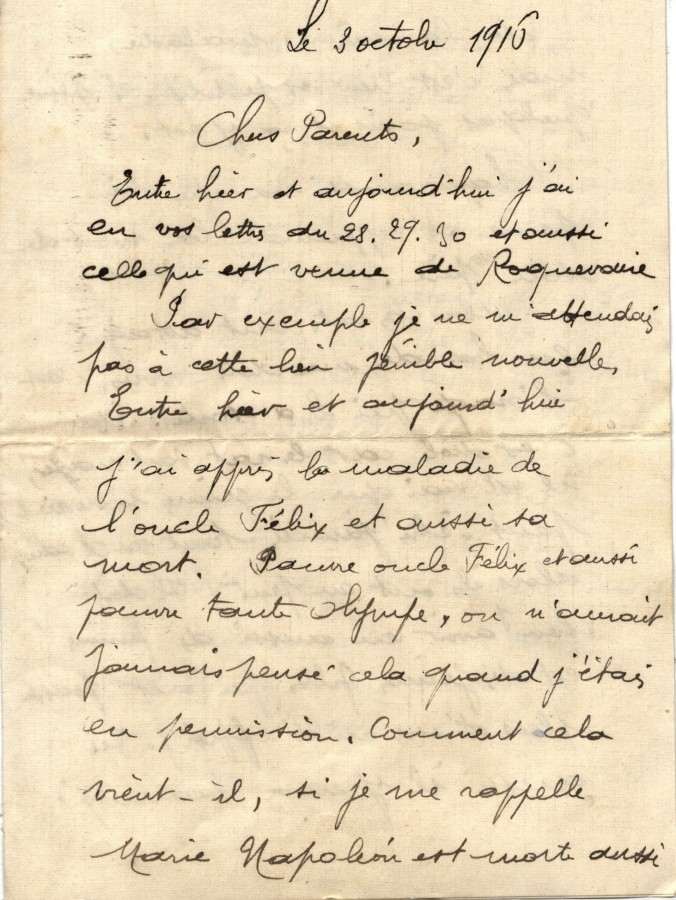 Le 3 octobre 1916
Chers Parents,
Entre hier et aujourd'hui j'ai
eu vos lettres du 28. 29. 30 et aussi
celle qui est venue de Roquevaire
Par exemple je ne m'attendais
pas à cette bien pénible nouvelle,
Entre hier et aujourd'hui
j'ai appris la maladie de
l'oncle Félix et aussi sa
mort. Pauvre oncle Félix et aussi
pauvre tante Olympe, on n'aurait
jamais pensé cela quand j'étais
en permission. Comment cela
vient-il, si je me rappelle
Marie Napoléon est morte aussi